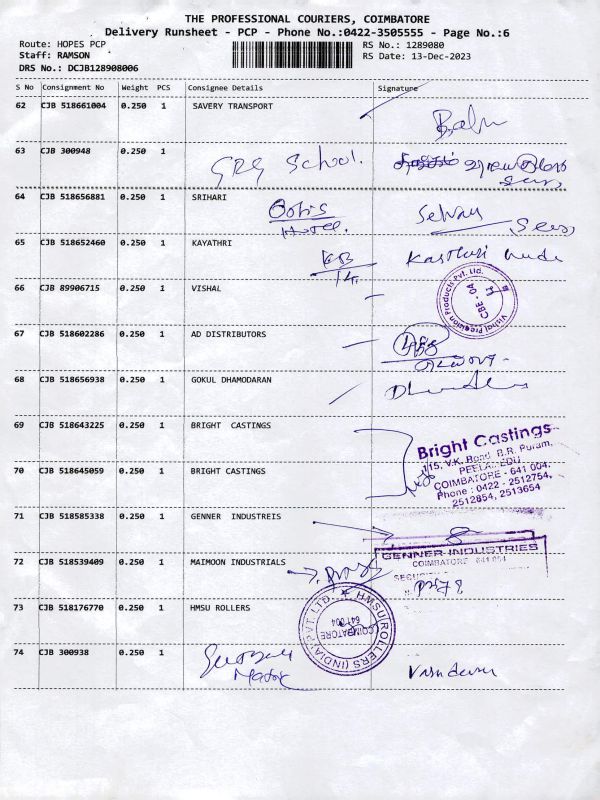 THE PROFESSIONAL COURIERS, COIMBATORE
Delivery Runsheet - PCP - Phone No.:0422-3505555 - Page No.:6
Route: HOPES PCP RS No.: 1289080
Staff: RAMSON RS Date: 13-Dec-2023
DRS No.: DCJB128908006
S No Consignment No Weight PCS Consignee Details Signature
62 CJB 518661004 0.250 1 SAVERY TRANSPORT
Babu
63 CJB 300948 0.250 1 GRG School.
64 CJB 518656881 0.250 1 SRIHARI Selvam
Hotel.
65 CJB 518652460 0.250 1 KAYATHRI
14.
66 CJB 89906715 0.250 1 VISHAL
Vishal Precision Products Pvt. Ltd.
CBE - 04
67 CJB 518602286 0.250 1 AD DISTRIBUTORS
68 CJB 518656938 0.250 1 GOKUL DHAMODARAN
69 CJB 518643225 0.250 1 BRIGHT CASTINGS
Bright Castings
115, V.K. Road, B.R. Puram,
PEELAMEDU
COIMBATORE - 641 004.
Phone : 0422 - 2512754,
2512854, 2513654
70 CJB 518645059 0.250 1 BRIGHT CASTINGS
71 CJB 518585338 0.250 1 GENNER INDUSTREIS
GENNER INDUSTRIES
COIMBATORE 641 004
72 CJB 518539409 0.250 1 MAIMOON INDUSTRIALS
73 CJB 518176770 0.250 1 HMSU ROLLERS
HMSU ROLLERS (INDIA) PVT. LTD.
COIMBATORE
641 004
74 CJB 300938 0.250 1